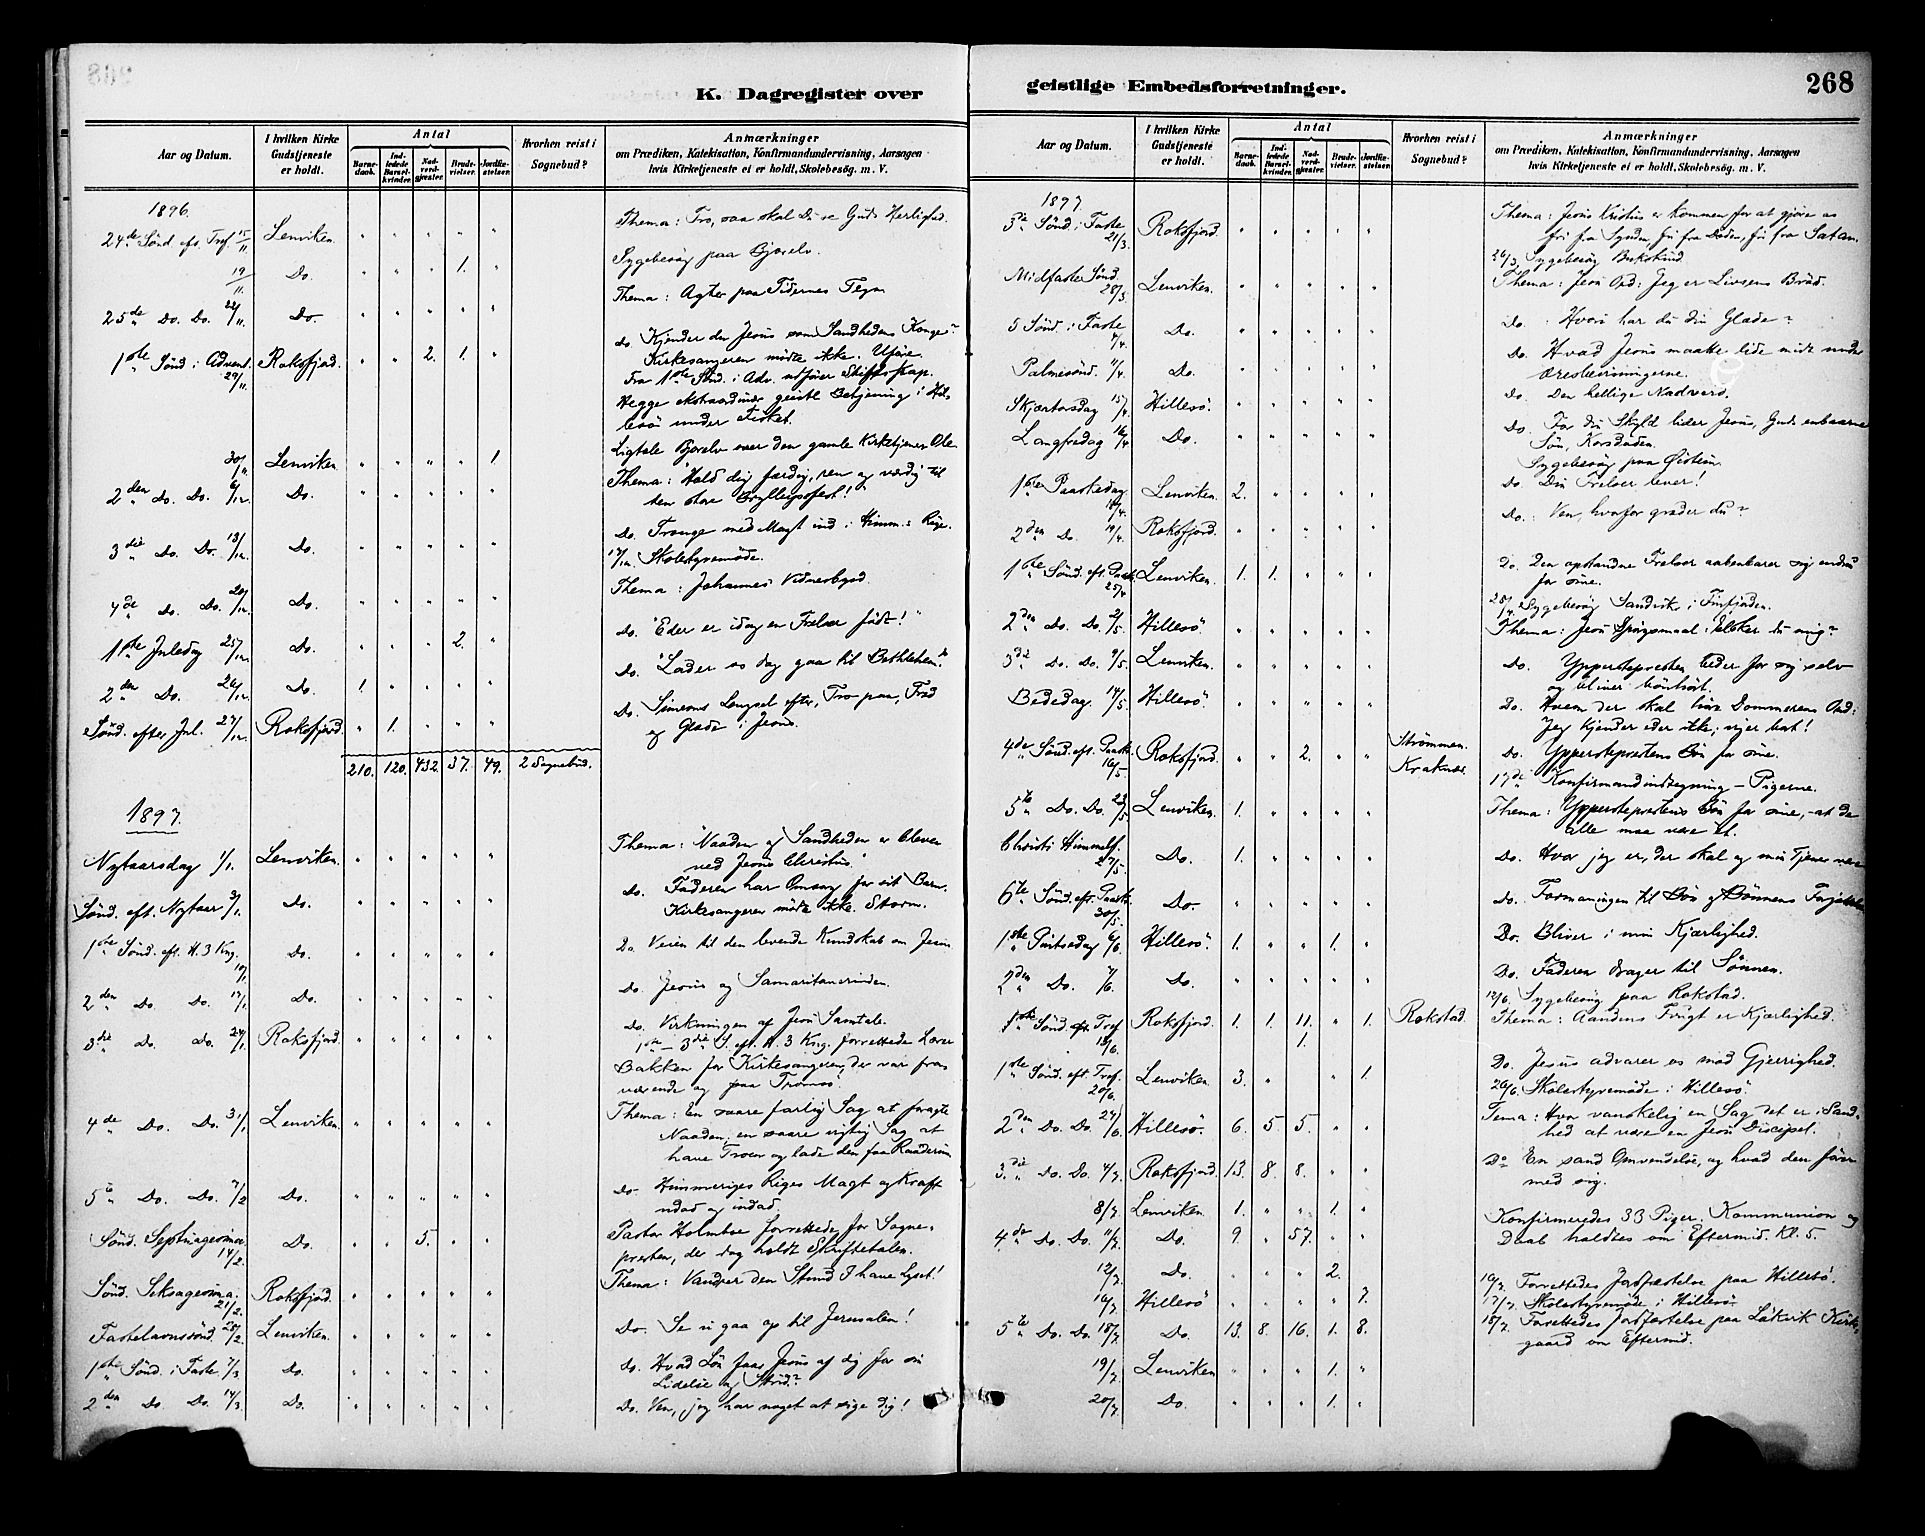 K. Dagregister over
Aar og Datum.
I hvilken Kirke Gudstjeneste er holdt.
Antal
Barnedaab.
Indledede Barselkvinder.
Nadverdgjæster.
Brudevielser.
Jordfæstelser.
Hvorhen reist i Sognebud?
Anmærkninger
om Prædiken, Katekisation, Konfirmandundervisning, Aarsagen
hvis Kirketjeneste ei er holdt, Skolebesøg. m. V.
1896.
24de Sönd. eft. Tref. 15/11. Lenviken. Thema: Tro, saa skal Du se Guds Herlighed.
19/11. Do. 1. Sygebesög paa Bjorelv.
Thema: Agter paa Tidernes Tegn
25de Do. Do. 22/11. Do.
1ste Sönd. i Advent. 29/11. Roksfjord. 2. 1. Do. Kjender du Jesus som Sandhedens Konge?
Kirkesangeren mödte ikke. Uföre.
Fra 1ste Sönd. i Adv. udförer Skibskap.
Hegge ekstraordinær geistl. Betjening i Hillesö under Fisket.
30/11. Lenviken. 1 Ligtale Bjorelv over den gamle Kirketjener Ole
2den Do. Do. 6/12. Do. Thema: Hold dig færdig, ren og værdig til
den store Bryllupsfest!
3die Do. Do. 13/12. Do. Do. Trænge med Magt ind i Himm.s Rige.
17/12. Skolestyremöde.
Thema: Johannes Vidnesbyrd.
4de Do. Do. 20/12. Do.
1ste Juledag 25/12. Do. 2. Do. "Eder er idag en Frelser födt!"
2den Do. 26/12. Do. 1. Do. "Lader os dog gaa til Bethlehem."
Sönd. efter Jul. 27/12. Roksfjord. 1. Do. Simeons Længsel efter, Tro paa, Fred
og Glæde i Jesus.
210. 120. 432. 37. 49. 2 Sognebud.
1897.
Nytaarsdag 1/1. Lenviken. Thema: "Naaden og Sandheden er bleven
ved Jesus Christus."
Sönd. eft. Nytaar 3/1. Do. Do. Faderen har Omsorg for sit Barn.
Kirkesangeren mödte ikke. Storm.
1ste Sönd. eft. H. 3 Kng. 10/1. Do. Do. Veien til den levende Kundskab om Jesus
2den Do. Do. 17/1. Do. Do. Jesus og Samaritanerinden.
3die Do. Do. 24/1. Roksfjord. Do. Virkningen af Jesu Samtale.
1ste – 3die S. eft. H. 3 Kng. forrettede Lærer
Bakken for Kirkesangeren, der var fraværende og paa Tromsö.
4de Do. Do. 31/1. Lenviken. Thema: En saare farlig Sag at foragte
Naaden, en saare vigtig Sag at
have Troen og lade den faa Raaderum
5te Do. Do. 7/2 Do. Do. Himmeriges Riges Magt og Kraft
udad og indad.
Sönd. Septuagesima 14/2. Do. 5. Pastor Holmboe forrettede for Sognepresten, der dog holdt Skriftetalen.
Sönd. Seksagesima. 21/2. Roksfjord. Thema: Vandrer den Stund I have Lyset!
Fastelavnssönd. 28/2. Lenviken. Do. Se vi gaa op til Jerusalem!
1ste Sönd. i Faste 7/3. Do. Do. Hvad Lön faar Jesus af dig for sin
Lidelse og Strid?
2den Do. Do. 14/3. Do. Do. Ven, jeg har noget at sige dig!
geistlige Embedsforretninger.
268
Aar og Datum.
I hvilken Kirke Gudstjeneste er holdt.
Antal
Barnedaab.
Indledede Barselkvinder.
Nadverdgjæster.
Brudevielser.
Jordfæstelser.
Hvorhen reist i Sognebud?
Anmærkninger
om Prædiken, Katekisation, Konfirmandundervisning, Aarsagen
hvis Kirketjeneste ei er holdt, Skolebesøg. m. V.
1897.
3die Sönd. i Faste 21/3. Roksfjord. Thema: Jesus Kristus er kommen for at gjöre os
fri fra Synden, fri fra Döden, fri fra Satan.
26/3. Sygebesög
Midfaste Sönd. 28/3. Lenviken. Thema: Jesu Ord: Jeg er Livsens Bröd.
5 Sönd. i Faste 4/4. Do. Do. Hvori har du din Glæde?
Palmesönd. 11/4. Do. Do. Hvad Jesus maatte lide midt under
Æresbevisningerne.
Skjærtorsdag 15/4. Hillesö. Do. Den hellige Nadverd.
Langfredag 16/4 Do. Do. For din Skyld lider Jesus, Guds enbaarne
Sön, Korsdöden.
Sygebesög paa
1ste Paaskedag 18/4. Lenviken. 2. Do. Din Frelser lever!
2den Do. 19/4. Roksfjord. Do. Ven, hvorfor græder du?
1ste Sönd. eft. Paaske 25/4 Lenviken. 1. 1. Do. Den opstandne Frelser aabenbarer sig endnu
for sine.
28/4. Sygebesög Sandvik i
2den Do. Do. 2/5. Hillesö. Thema: Jesu Spörgsmaal: Elsker du mig?
3die Do. Do. 9/5. Lenviken. Do. Ypperstepresten beder for sig selv
og bliver bönhört.
Bededag. 14/5 Hillesö. Do. Hvem der skal höre Dommerens Ord:
Jeg kjender eder ikke; viger bort!
4de Sönd. eft. Paaske 16/5 Roksfjord. 2. Strömmen. Kraknæs. Do. Yppersteprestens Bön for sine.
17de Konfirmandindtegning – Pigerne.
5te Do. Do. 23/5 Lenviken. 1. Thema: Yppersteprestens Bön for sine, – at de
alle maa være et.
Christi Himmelf. 27/5. Do. 1. Do. Hvor jeg er, der skal og min Tjener være
6te Sönd. eft. Paaske 30/5. Do. Do. Formaningen til Bön og Bönnens Forjættelse
1ste Pintsedag 6/6. Hillesö. 1. 1. Do. Bliver i min Kjærlighed.
2den Do. 7/6. Do. Do. Faderen drager til Sönnen.
12/6. Sygebesög paa Rokstad.
Sönd. Tref. 13/6. Roksfjord. 1. 1. 11. 1. 1. Rokstad. Thema: Aandens Frugt er Kjærlighed.
1ste Sönd. eft. Tref. 20/6. Lenviken. 3. 1. Do. Jesus advarer os mod Gjerrighed.
26/6. Skolestyremöde i Hillesö.
2den Do. Do. 27/6. Hillesö. 6. 5. 5. Tema: Hvor vanskelig en Sag det er i Sandhed at være en Jesu Discipel.
3die Do. Do. 4/7. Roksfjord. 13. 8. 8. Do. En sand Omvendelse, og hvad den förer
med sig.
8/7. Lenviken. 1. 1.
4de Do. Do. 11/7. Do. 9. 57. Konfirmeredes 33 Piger. Kommunion og
Daab holdtes om Eftermid. Kl. 5.
12/7. Do. 2.
16/7. Hillesö 7. 16/7. Forrettedes Jordfæstelse paa Hillesö.
17/7. Skolestyremöde i Hillesö.
5te Do. Do. 18/7. Do. 13. 8. 16. 1. 8. 18/7. Forrettedes Jordfæstelse paa Kirkegaard om Eftermid.
19/7. Lenviken 1.
20/7. Do. 1.